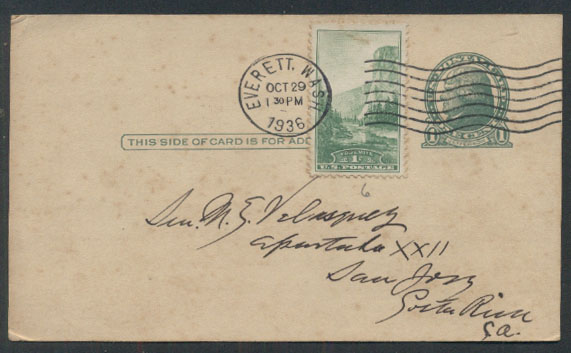 EVERETT, WASH.
OCT 29
1 30 PM
1936
THIS SIDE OF CARD IS FOR ADD
YOSEMITE
1¢
U.S. POSTAGE
6
Sen. M. E. Velasquez
Apartado XXII
San Jose
Costa Rica
CA.